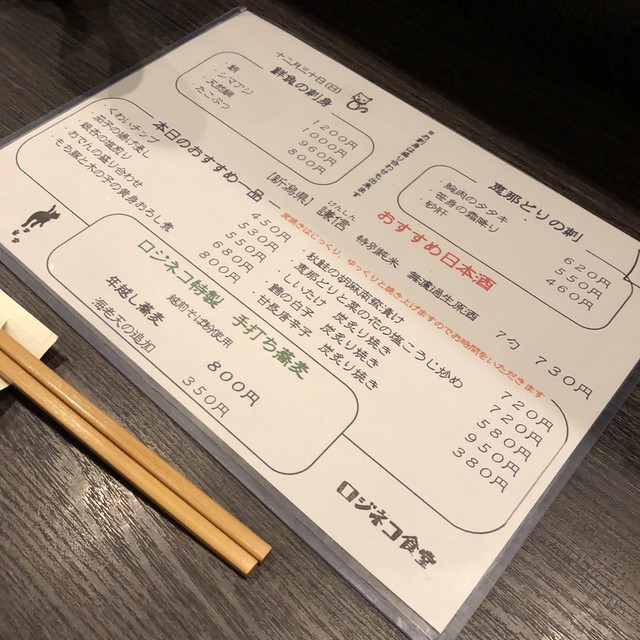 十二月三十日(日)
鮮魚の刺身
・鯖 1200円
・シマアジ 1000円
・天然鯛 960円
・たこぶつ 800円
恵那とりの刺
・胸肉のタタキ 620円
・笹身の霜降り 550円
・砂肝 460円
おすすめ日本酒
[新潟県] 謙信 特別純米 無濾過生原酒 7勺 730円
けんしん
本日のおすすめ一品
・くわいチップ 450円
530円
550円
・おでんの盛り合わせ 680円
・もち豚と木の子の青身おろし煮 800円
炭焼きはじっくり、ゆっくりと焼き上げますのでお時間をいただきます
・秋鮭の胡麻豆乳漬け 720円
・恵那とりと菜の花の塩こうじ炒め 720円
・しいたけ 炭炙り焼き 580円
・鱈の白子 炭炙り焼き 950円
・甘長唐辛子 炭炙り焼き 380円
ロジネコ特製 手打ち蕎麦
年越し蕎麦 800円
越前そば粉使用
海老天の追加 350円
ロジネコ食堂